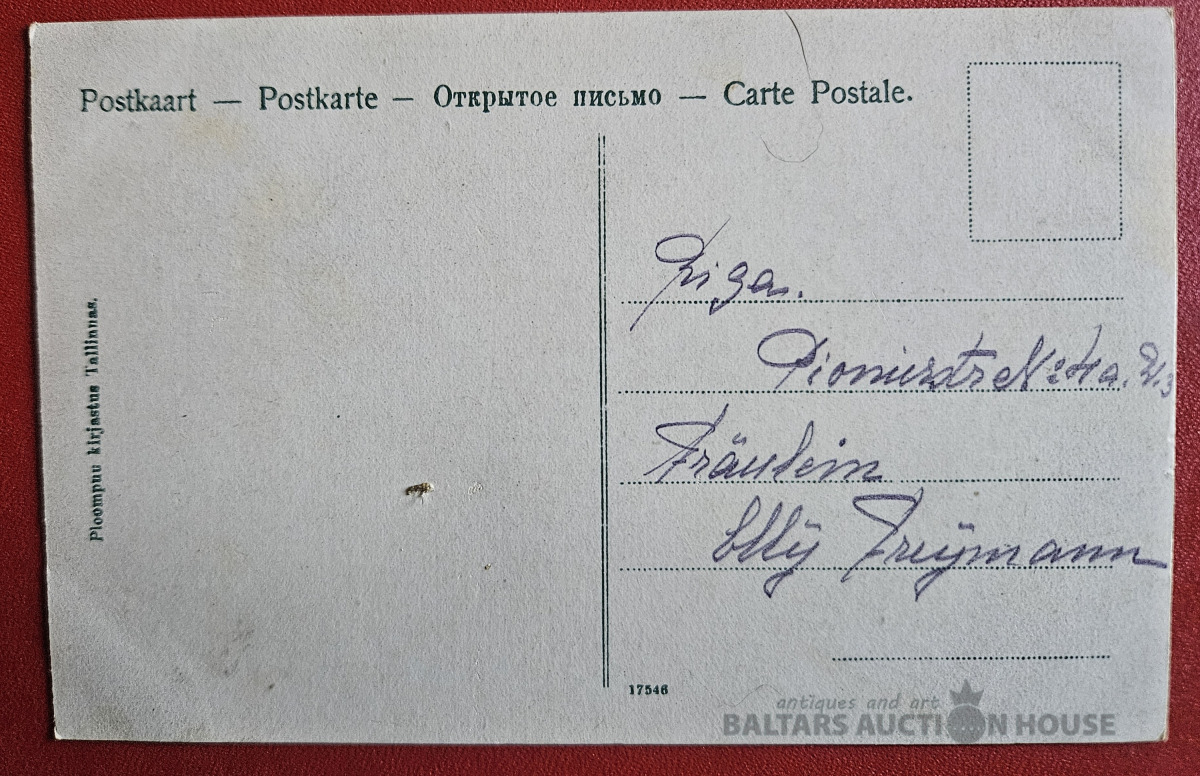 Postkaart — Postkarte — Открытое письмо — Carte Postale.
Ploompuu kirjastus Tallinnas.
Riga.
Pionierstr № 4a. W.3
Fräulein
Elly Freÿmann
17546
antiques and art
BALTARS AUCTION HOUSE